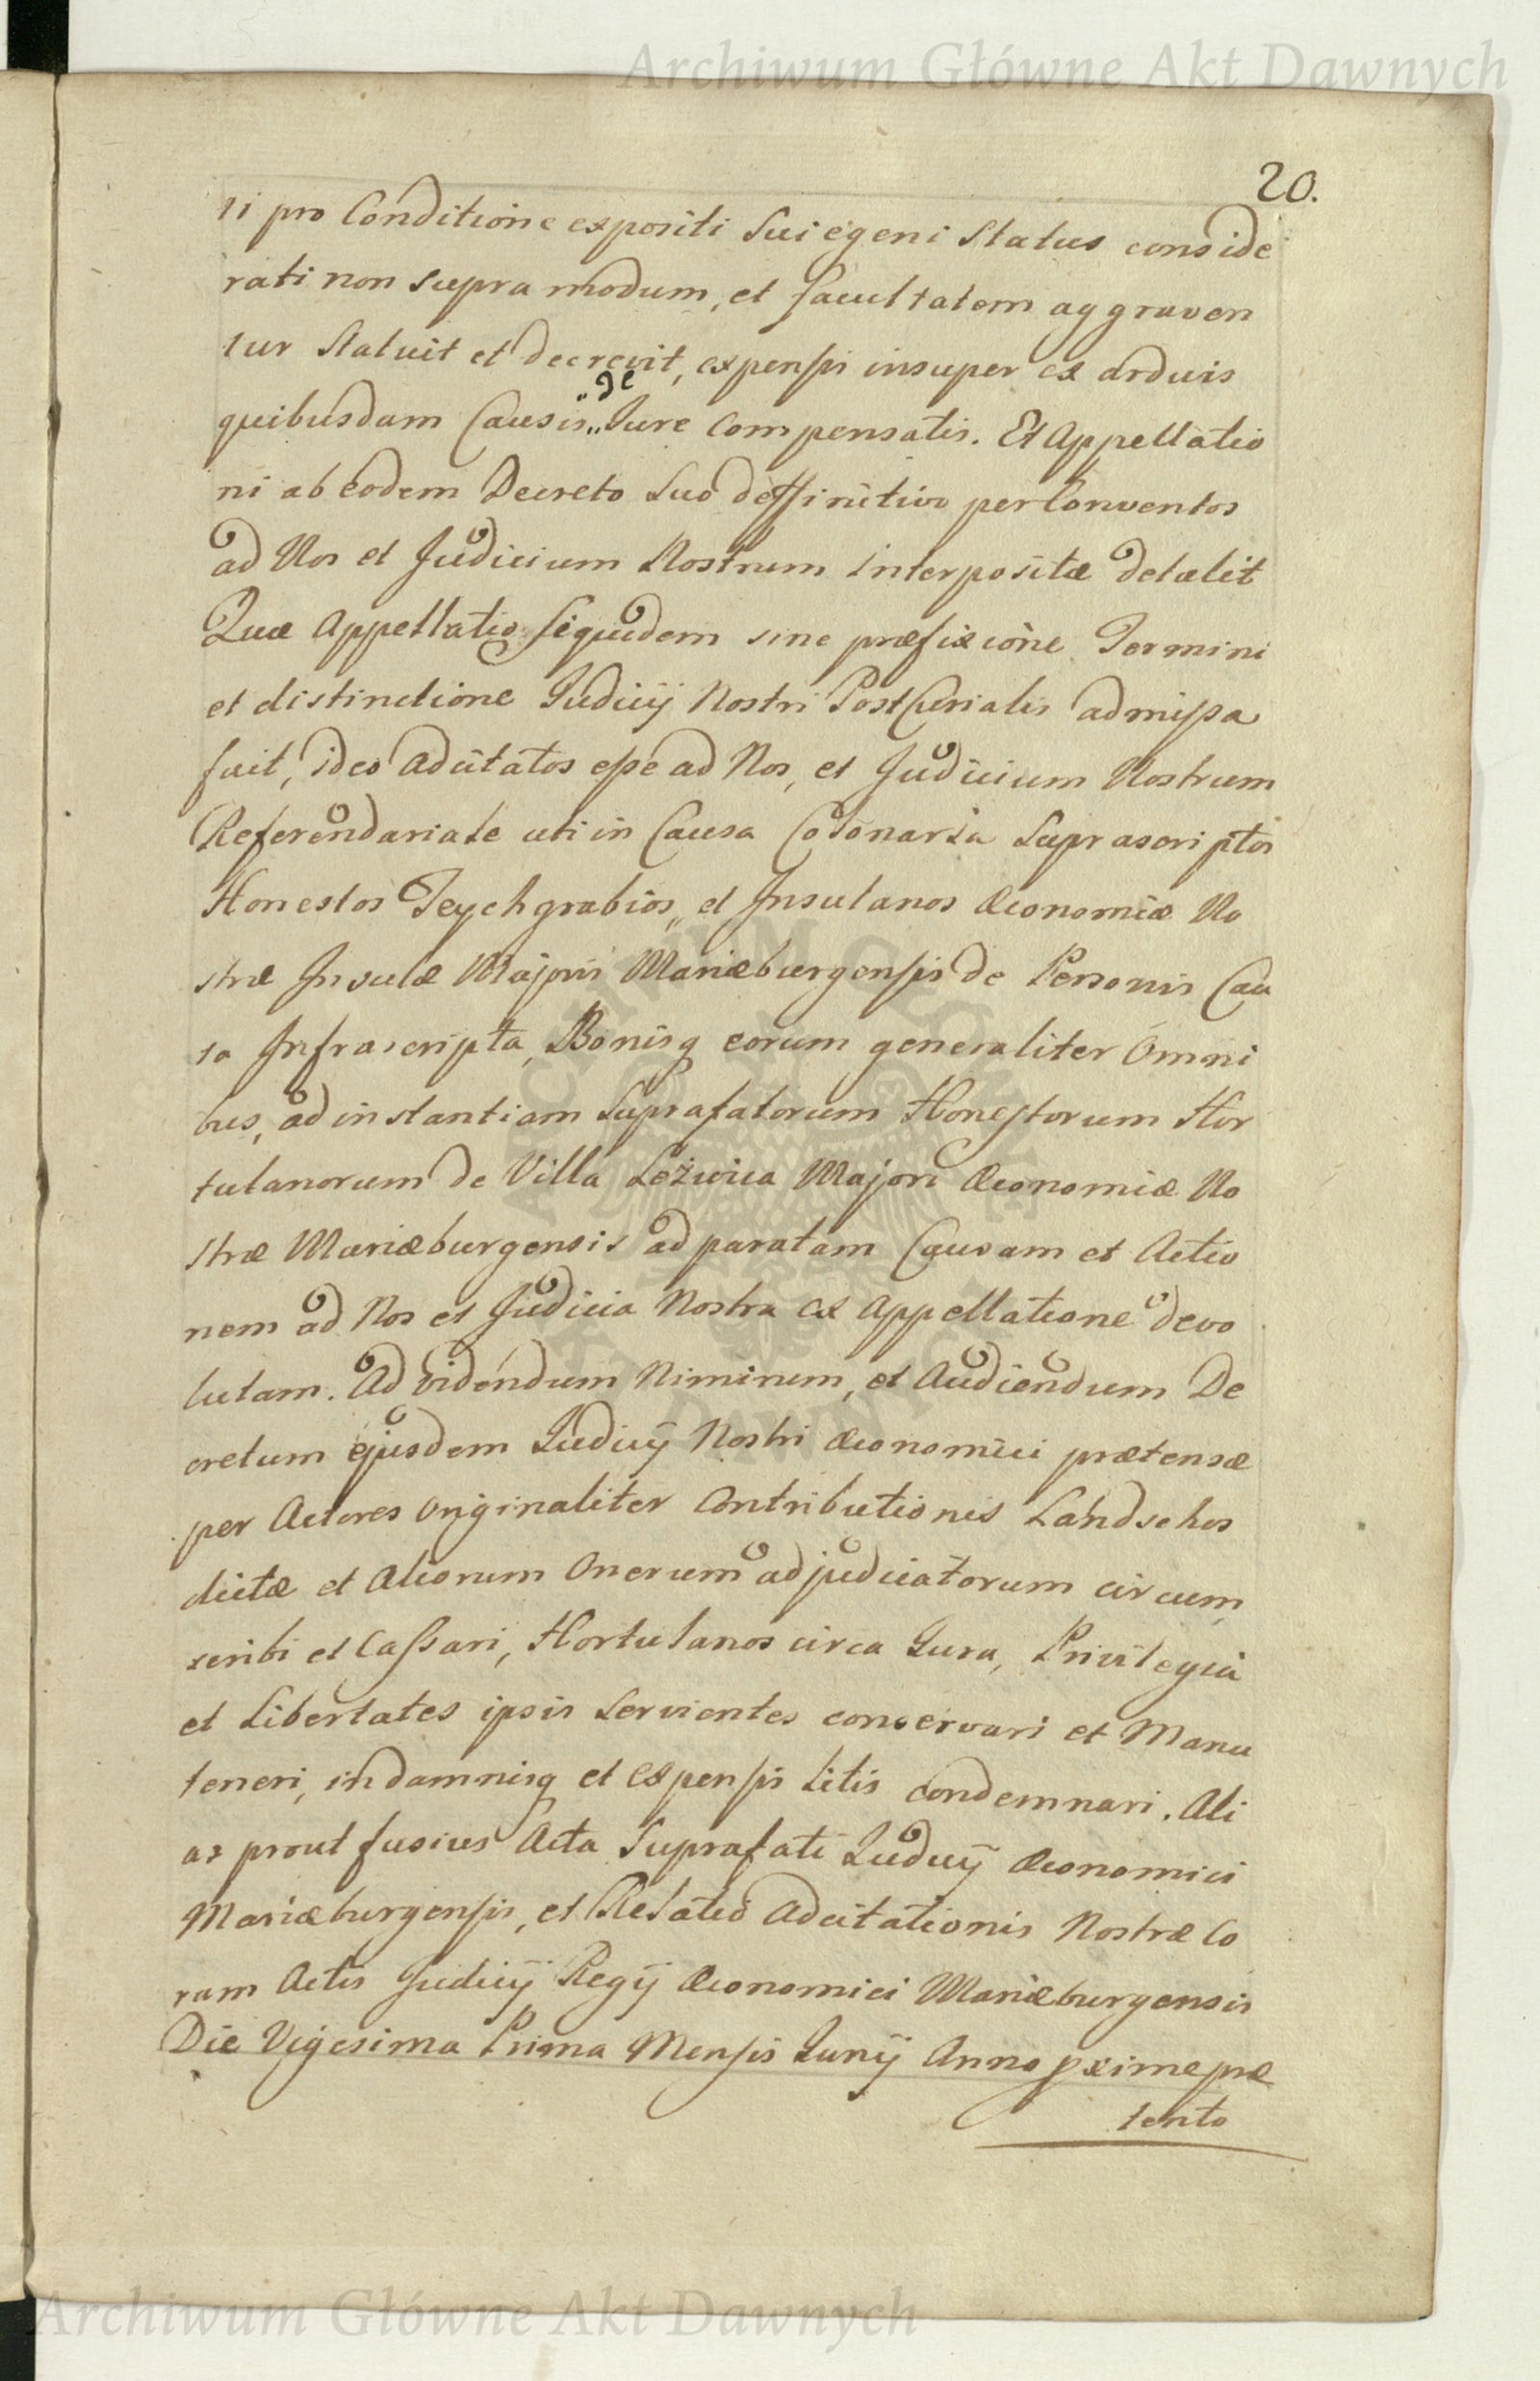 Archiwum Główne Akt Dawnych
20.
ri pro Conditione expositi sui egeni Status conside
rati non supra modum, et facultatem aggraven
tur Statuit et decrevit, expensis insuper ex arduis
de
quibusdam Causis„ Jure compensatis. Et Appellatio
ni ab eodem Decreto suo deffinitivo per Conventos
ad Nos et Judicium Nostrum interpositæ detulit
Quæ Appellatio siquidem sine præfixione Termini
et distinctione Judicij Nostri PostCurialis admissa
fuit, ideo Adcitatos esse ad Nos, et Judicium Nostrum
Referendariale uti in Causa Colonaria Suprascriptos
Honestos Teychgrabios„ et Insulanos Œconomiæ No
stræ Insulæ Majoris Mariæburgensis de Personis Cau
sa Infrascripta, Bonisq eorum generaliter Omni
bus, ad instantiam Suprafatorum Honestorum Hor
tulanorum de Villa Leżwica Majori Œconomiæ No
stræ Mariæburgensis ad paratam Causam et Actio
nem ad Nos et Judicia Nostra ex Appellatione devo
lutam. Ad videndum Nimirum, et Audiendum De
cretum ejusdem Judicij Nostri Œconomici prætensæ
per Actores Originaliter Contributionis Landschos
dictæ et Aliorum Onerum adjudicatorum circum
scribi et Cassari, Hortulanos circa Jura, Privilegia
et Libertates ipsis Servientes conservari et Manu
teneri, in damnisq et expensis Litis condemnari. Ali
as prout fusius Acta Suprafati Judicij Œconomici
Mariæburgensis, et Relatio Adcitationis Nostræ Co
ram Actis Judicij Regij Œconomici Mariæburgensis
Die Vigesima Prima Mensis Junij Anno pxime præ
tento
Archiwum Główne Akt Dawnych